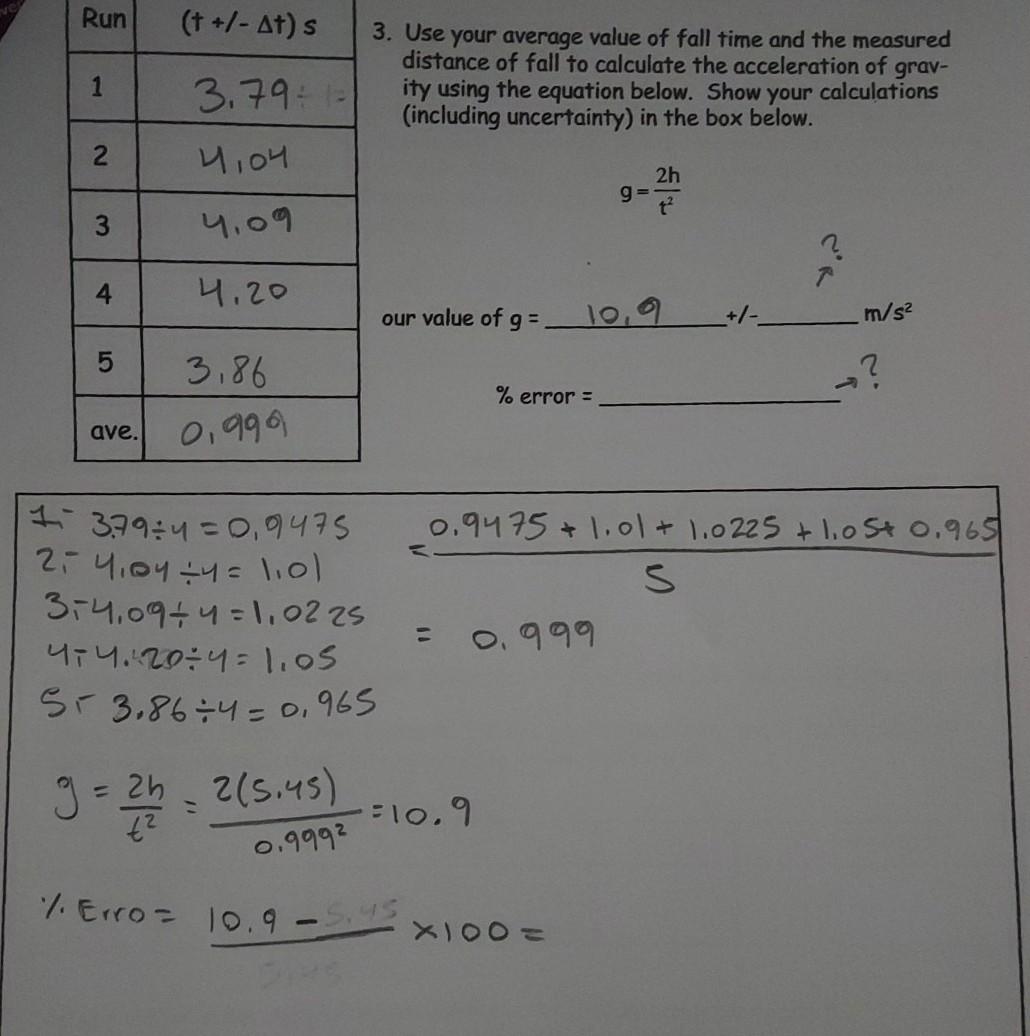 Run (t +/- Δt) s
1 3.79
2 4.04
3 4.09
4 4.20
5 3.86
ave. 0.999
3. Use your average value of fall time and the measured
distance of fall to calculate the acceleration of grav-
ity using the equation below. Show your calculations
(including uncertainty) in the box below.
g = 2h / t²
?
our value of g = 10.9 +/- ______ m/s²
% error = ______ → ?
1.- 3.79÷4 = 0.9475
2.- 4.04÷4 = 1.01
3.- 4.09÷4 = 1.0225
4.- 4.20÷4 = 1.05
5.- 3.86÷4 = 0.965
= 0.9475 + 1.01 + 1.0225 + 1.05 + 0.965 / 5
= 0.999
g = 2h / t² = 2(5.45) / 0.999² = 10.9
% Erro = 10.9 - 5.45 / 5.45 ×100 =